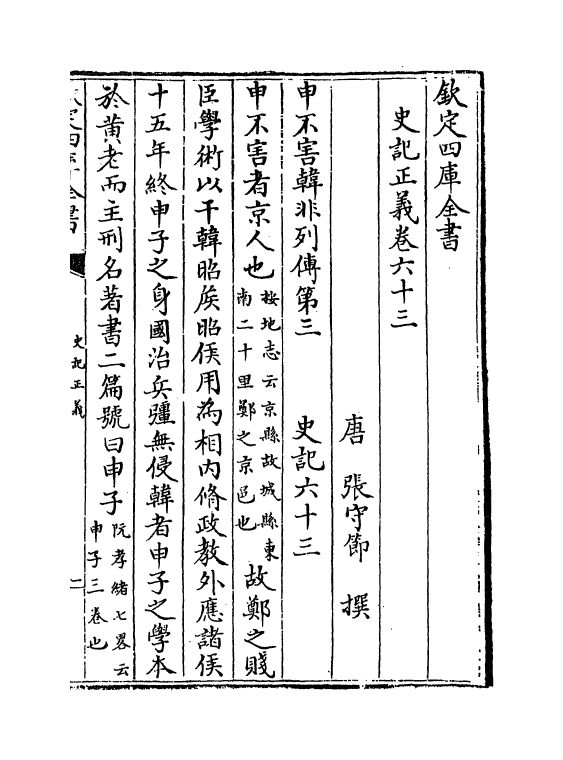 欽定四庫全書
史記正義卷六十三
唐 張守節 撰
申不害韓非列傳第三 史記六十三
申不害者京人也按地志云京縣故城縣東南二十里鄭之京邑也故鄭之賤
臣學術以干韓昭侯昭侯用為相内脩政教外應諸侯
十五年終申子之身國治兵彊無侵韓者申子之學本
於黄老而主刑名著書二篇號曰申子阮孝緒七畧云申子三卷也
欽定四庫全書
史記正義
一